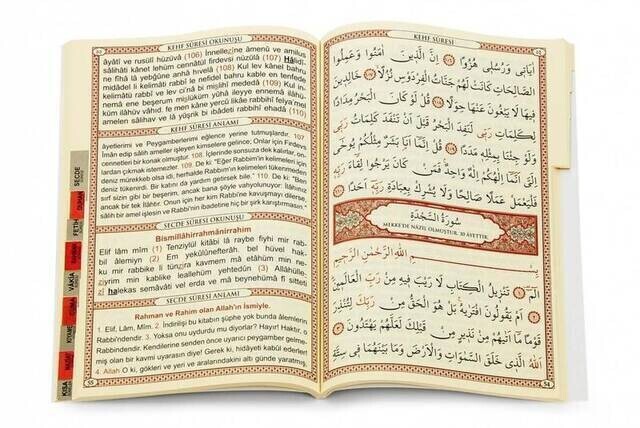 KEHF SÛRESİ OKUNUŞU
âyâtî ve rusulî hüzüvâ (106) İnnellezîne âmenû ve amilus
sâlihâti kânet lehüm cennâtül firdevsi nüzülâ (107) Hâlidî-
ne fîhâ lâ yebğûne anhâ hıvelâ (108) Kul lev kânel bahru
midâdel li kelimâti rabbî le nefidel bahru kable en tenfede
kelimâtü rabbî ve lev ci'nâ bi mislihî mededâ (109) Kul in-
nemâ ene beşerum mislüküm yûhâ ileyye ennemâ ilâhü-
küm ilâhüv vâhıd. fe men kâne yercû likâe rabbihî felya'mel
amelen sâlihav ve lâ yüşrik bi ıbâdeti rabbihî ehadâ (110)
KEHF SÛRESİ ANLAMI
âyetlerimi ve Peygamberlerimi eğlence yerine tutmuşlardır. 107.
İman edip sâlih ameller işleyen kimselere gelince; Onlar için Firdevs
cennetleri bir konak olmuştur. 108. İçlerinde sonsuza dek kalırlar, on-
lardan çıkmak istemezler. 109. De ki: "Eğer Rabbim'in kelimeleri için
deniz mürekkeb olsa idi, herhalde Rabbim'in kelimeleri tükenmeden
deniz tükenirdi. Bir katını da yardım getirsek bile." 110. De ki: "Ben
sırf sizin gibi bir beşerim, ancak bana şöyle vahyolunuyor: İlâhınız
ancak bir tek İlâhtır. Onun için her kim Rabbi'ne kavuşmayı dilerse,
sâlih bir amel işlesin ve Rabbi'nin ibadetine hiç bir şirk karıştırmasın."
SECDE SÛRESİ OKUNUŞU
Bismillâhirrahmânirrahîm
Elif lâm mîm (1) Tenzîylül kitâbi lâ raybe fîhi mir rab-
bil âlemiyn (2) Em yekûlûnefterâh. bel hüvel hak-
ku mir rabbike li tünzira kavmem mâ etâhüm min ne-
ziyrim min kablike leallehüm yehtedûn (3) Allâhülle-
zî halekas semâvâti vel erda ve mâ beynehümâ fî sitteti
SECDE SÛRESİ ANLAMI
Rahman ve Rahim olan Allah'ın İsmiyle.
1. Elif, Lâm, Mîm. 2. İndirilişi bu kitabın şüphe yok bunda âlemlerin
Rabbi'ndendir. 3. Yoksa onu uydurdu mu diyorlar? Hayır! Haktır, o
Rabbindendir. Kendilerine senden önce uyarıcı peygamber gelme-
miş olan bir kavmi uyarasın diye! Gerek ki, hidâyeti kabûl ederler!
4. Allah O ki, gökleri ve yeri ve aralarındakini altı günde yaratmış
55
SECDE
DUHAN
FETİH
VÂKIA
KISA
KEHF SÛRESİ
اٰيَاتٖي وَرُسُلٖي هُزُوًا ﴿١٠٦﴾ اِنَّ الَّذٖينَ اٰمَنُوا وَعَمِلُوا
الصَّالِحَاتِ كَانَتْ لَهُمْ جَنَّاتُ الْفِرْدَوْسِ نُزُلًا ﴿١٠٧﴾ خَالِدٖينَ
فٖيهَا لَا يَبْغُونَ عَنْهَا حِوَلًا ﴿١٠٨﴾ قُلْ لَوْ كَانَ الْبَحْرُ مِدَادًا
لِكَلِمَاتِ رَبّٖي لَنَفِدَ الْبَحْرُ قَبْلَ اَنْ تَنْفَدَ كَلِمَاتُ رَبّٖي
وَلَوْ جِئْنَا بِمِثْلِهٖ مَدَدًا ﴿١٠٩﴾ قُلْ اِنَّمَا اَنَا بَشَرٌ مِثْلُكُمْ يُوحٰى
اِلَيَّ اَنَّمَا اِلٰهُكُمْ اِلٰهٌ وَاحِدٌ فَمَنْ كَانَ يَرْجُوا لِقَاءَ رَبِّهٖ
فَلْيَعْمَلْ عَمَلًا صَالِحًا وَلَا يُشْرِكْ بِعِبَادَةِ رَبِّهٖ اَحَدًا ﴿١١٠﴾
سُورَةُ السَّجْدَةِ
MEKKE'DE NÂZİL OLMUŞTUR. 30 ÂYETTİR.
بِسْمِ اللهِ الرَّحْمٰنِ الرَّحٖيمِ
الٓمٓ ﴿١﴾ تَنْزٖيلُ الْكِتَابِ لَا رَيْبَ فٖيهِ مِنْ رَبِّ الْعَالَمٖينَ ﴿٢﴾
اَمْ يَقُولُونَ افْتَرٰيهُ بَلْ هُوَ الْحَقُّ مِنْ رَبِّكَ لِتُنْذِرَ
قَوْمًا مَا اَتٰيهُمْ مِنْ نَذٖيرٍ مِنْ قَبْلِكَ لَعَلَّهُمْ يَهْتَدُونَ ﴿٣﴾
اَللهُ الَّذٖي خَلَقَ السَّمٰوَاتِ وَالْاَرْضَ وَمَا بَيْنَهُمَا فٖي سِتَّةِ
54